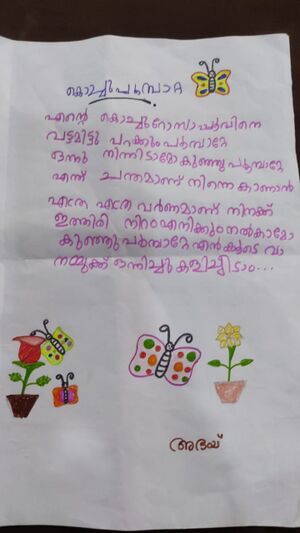 കൊച്ചുപൂമ്പാറ്റ
എന്റെ കൊച്ചുറോസാച്ചെടിയിനെ
വട്ടമിട്ടു പറക്കും പൂമ്പാറ്റേ
ഒന്നു നിന്നിടാമോ കുഞ്ഞു പൂമ്പാറ്റേ
എന്ത് ചന്തമാണ് നിന്നെ കാണാൻ
എത്ര എത്ര വർണമാണ് നിനക്ക്
ഇത്തിരി നിറം എനിക്കും നൽകാമോ
കുഞ്ഞു പൂമ്പാറ്റേ എൻകൂടെ വാ
നമുക്ക് ഒന്നിച്ചു കളിച്ചീടാം...
അഭയ്